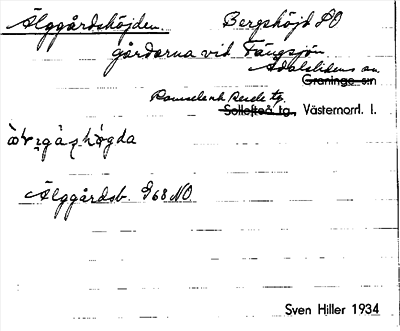 Älggårdshöjden. Bergshöjd SO
gårdarna vid Tängsjön
Ådalslidens sn
Graninge s:n
Ramsele och Resele tg.
Sollefteå tg., Västernorrl. l.
Älggårdsb. 968 NO
Sven Hiller 1934